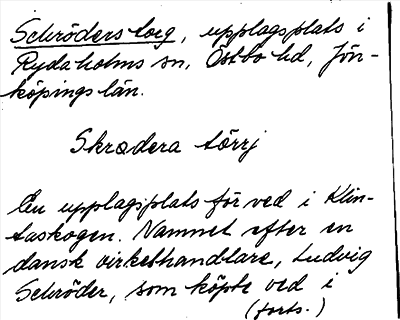 Schröders torg, upplagsplats i
Rydaholms sn, Östbo hd, Jön-
köpings län.
Skrædera tårrj
En upplagsplats för ved i Klin-
taskogen. Namnet efter en
dansk virkeshandlare, Ludvig
Schröder, som köpte ved i
(forts.)